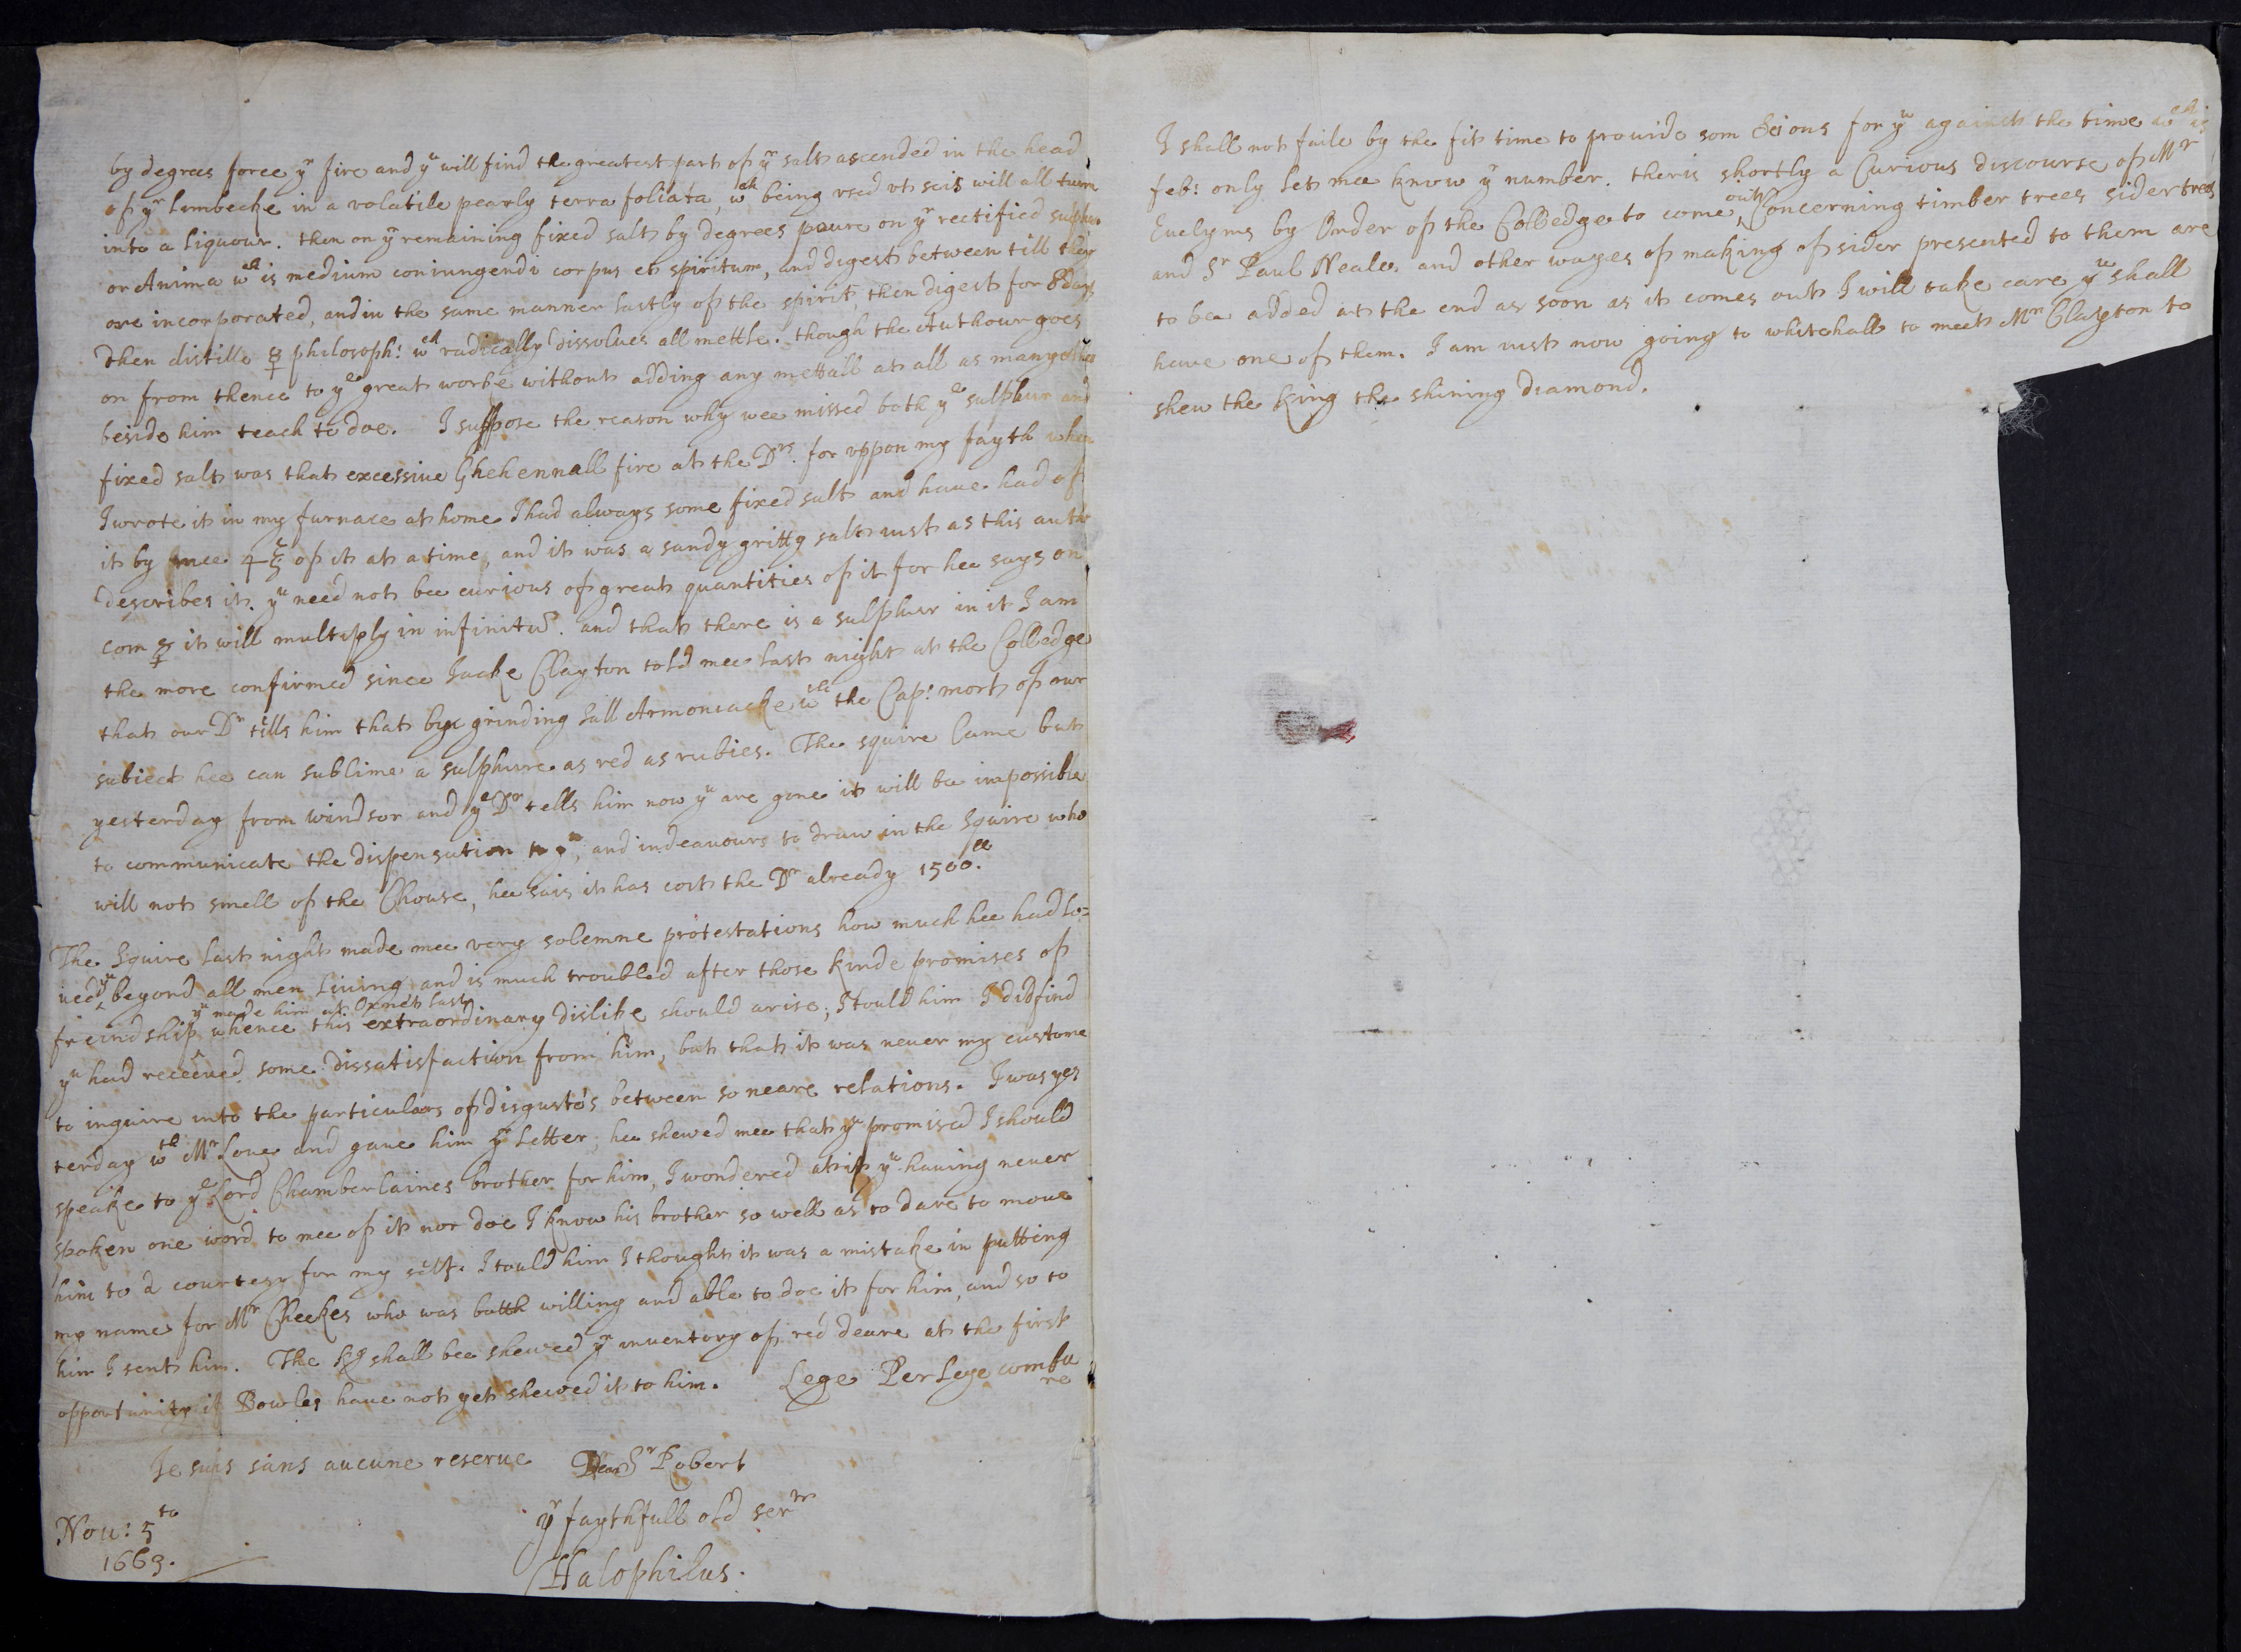 by degrees force yr fire and yu will find the greatest part of yr salt ascended in the head
of yr Limbecke in a volatile pearly terra foliata, wch being vsed vt scis will all turn
into a liquour. then on yr remaining fixed salt by degrees poure on yr rectified sulphur
or Anima wch is medium coniungendi corpus et spiritum, and digest between till they
are incorporated, and in the same manner lastly of the spirit, then digest for 8 days
then distille ☿ philosoph: wch radically dissolues all mettle. though the Authour goes
on from thence to ye great worke without adding any mettall at all as many others
beside him teach to doe. I suppose the reason why wee missed both ye sulphur and
fixed salt was that excessiue Ghehennall fire at the Drs. for vppon my fayth when
I wrote it in my furnace at home I had always some fixed salt and haue had of
it by mee 4 ℥ of it at a time, and it was a sandy gritty salt iust as this author
describes it. yu need not bee curious of great quantities of it for hee says on
com ☿ it will multiply in infinitū. and that there is a sulphur in it I am
the more confirmed since Jacke Clayton told mee last night at the Colledge
that our Dr tells him that by grinding Sall Armoniacke wth the Cap: mort of our
subiect hee can sublime a sulphure as red as rubies. The squire Came but
yesterday from windsor and ye Dr tells him now yu are gone it will be impossible
to communicate the dispensation to yu, and indeauours to draw in the Squire who
will not smell of the Chouse, hee sais it has cost the Dr already 1500.ll
The Squire last night made mee very solemne protestations how much hee had lo=
ued yu beyond all men liuing and is much troubled after those kinde promises of
freindship yu made him at Oxned last whence this extraordinary dislike should arise, I tould him I did find
yu had receiued some dissatisfaction from him, but that it was neuer my custome
to inquire into the particulars of disgusto's between so neare relations. I was yes
terday wth Mr Loue and gaue him yr Letter, hee shewed mee that yu promised I should
speake to ye Lord Chamberlaines brother for him, I wondered at it, yu hauing neuer
spoken one word to mee of it nor doe I know his brother so well as to dare to moue
him to a courtesy for my self. I tould him I thought it was a mistake in putting
my name for Mr Cheekes who was both willing and able to doe it for him, and so to
him I sent him. The Kg shall bee shewed yr inuentory of red deare at the first
opportunity if Bowles haue not yet shewed it to him. Lege Perlege combu
re
Je suis sans aucune reserue Dear Sr Robert
yr faythfull old servt
Nou: 5to
1663.
Halophilus.
I shall not faile by the fit time to prouide som Scions for yu against the time wch is
feb: only let mee know yr number. ther is shortly a Curious discourse of Mr
Euelyms by Order of the Colledge to come out Concerning timber trees sider trees
and Sr Paul Neale. and other wayes of making of sider presented to them are
to bee added at the end as soon as it comes out I will take care yu shall
haue one of them. I am iust now going to whitehall to meet Mr Clayton to
shew the King the shining diamond.